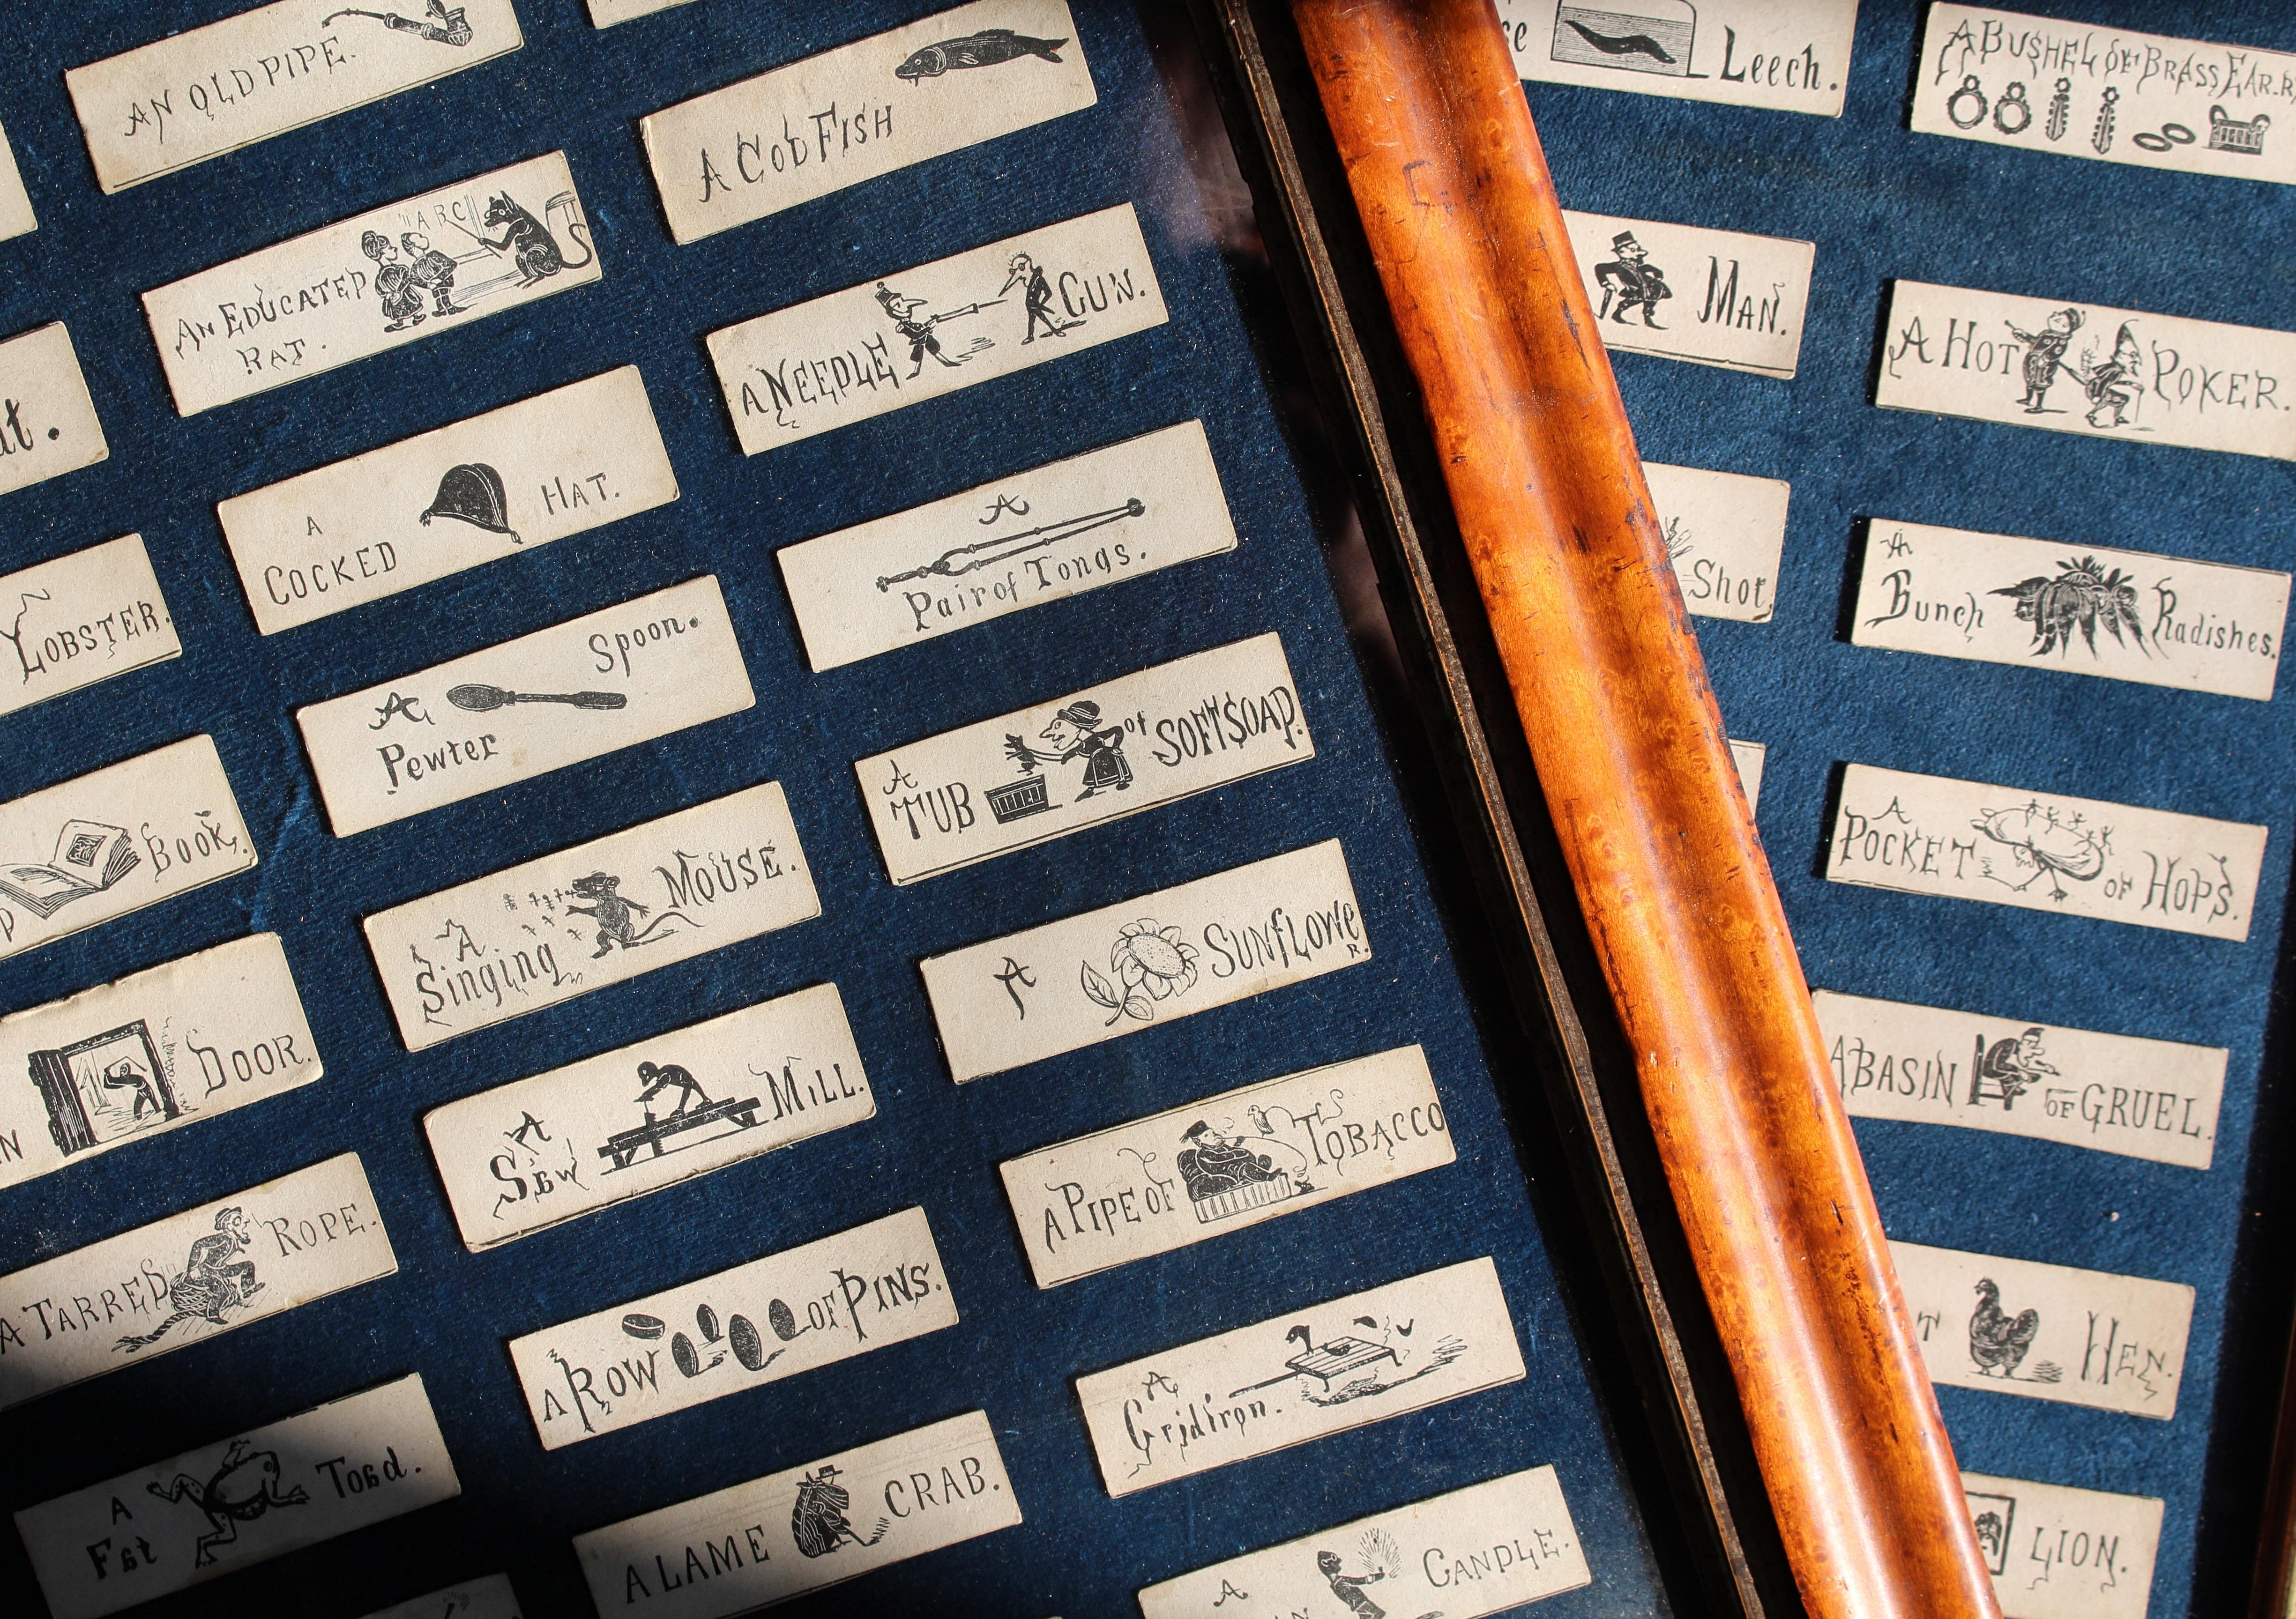 AN OLD PIPE.
A COD FISH
AN EDUCATED
RAT.
ARC
S
A NEEDLE GUN.
A
COCKED HAT.
A
Pair of Tongs.
LOBSTER.
A
Pewter Spoon.
A
TUB of SOFT SOAP.
BOOK.
A
Singing MOUSE.
A SUNFLOWE
R.
DOOR.
A
SAW MILL.
A PIPE OF TOBACCO
A TARRED ROPE.
A ROW OF PINS.
A
Gridiron.
A
Fat Toad.
A LAME CRAB.
A
CANDLE.
Leech.
A BUSHEL OF BRASS EAR.R
MAN.
A HOT POKER.
Shot
A
Bunch Radishes.
A
POCKET OF HOPS.
A BASIN OF GRUEL.
T HEN.
LION.